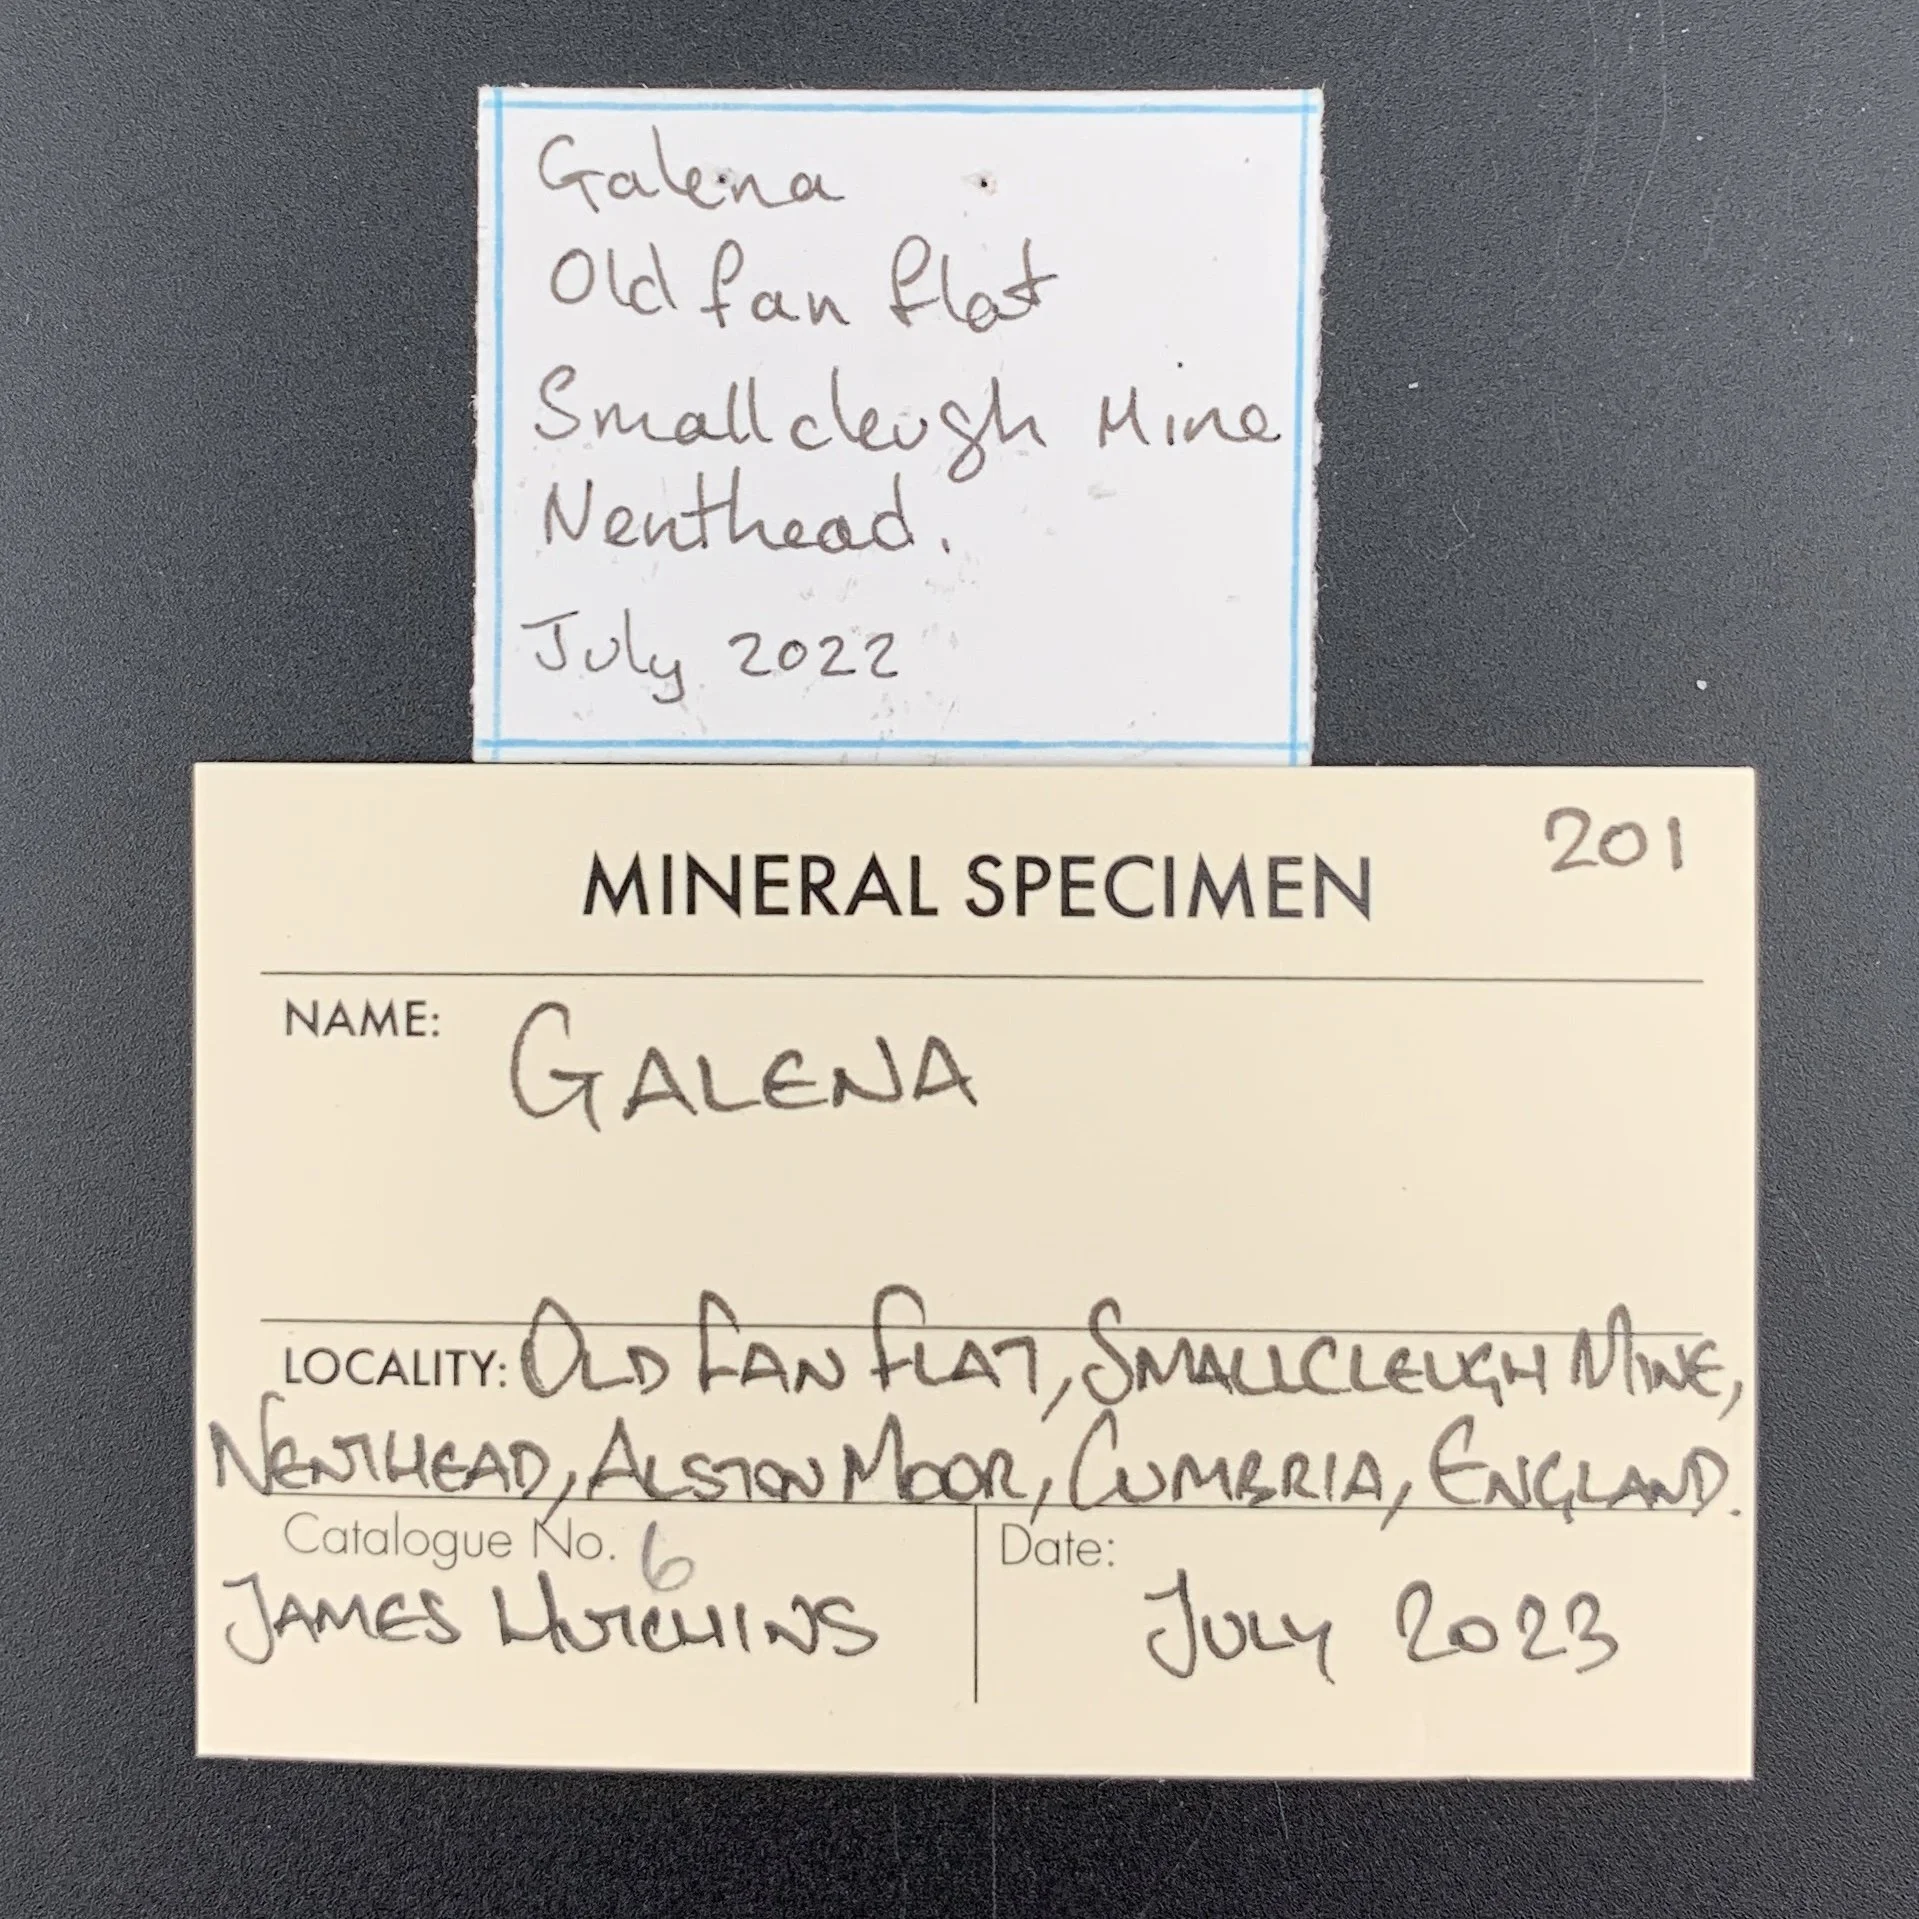 Galena
Old fan flat
Smallcleugh Mine
Nenthead.
July 2022
201
MINERAL SPECIMEN
NAME: GALENA
LOCALITY: OLD FAN FLAT, SMALLCLEUGH MINE,
NENTHEAD, ALSTON MOOR, CUMBRIA, ENGLAND.
Catalogue No. 6
JAMES HUTCHINS
Date:
JULY 2023